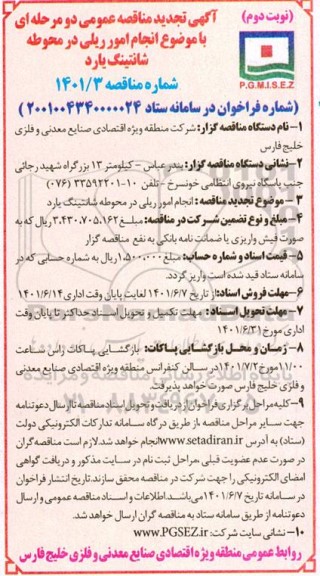 (نوبت دوم)
آگهی تجدید مناقصه عمومی دو مرحله ای
با موضوع انجام امور ریلی در محوطه
شانتینگ یارد
P.G.M.I.S.E.Z
شماره مناقصه ۱۴۰۱/۳
(شماره فراخوان در سامانه ستاد ۲۰۰۱۰۰۴۳۴۰۰۰۰۰۲۴)
۱-نام دستگاه مناقصه گزار: شرکت منطقه ویژه اقتصادی صنایع معدنی و فلزی
خلیج فارس
۲-نشانی دستگاه مناقصه گزار: بندرعباس - کیلومتر ۱۳ بزرگراه شهید رجائی
جنب پاسگاه نیروی انتظامی خونسرخ -تلفن ۱۰-۳۳۵۹۲۲۰۱ (۰۷۶)
۳- موضوع تجدید مناقصه: انجام امور ریلی در محوطه شانتینگ یارد
۴-مبلغ و نوع تضمین شرکت در مناقصه: مبلغ ۳,۴۳۰,۷۰۵,۱۶۲ ریال که به
صورت فیش واریزی یا ضمانت نامه بانکی به نفع مناقصه گزار
۵- قیمت اسناد و شماره حساب: مبلغ ۱,۵۰۰,۰۰۰ ریال به شماره حسابی که در
سامانه ستاد قید شده است واریز گردد.
۶-مهلت فروش اسناد: از تاریخ ۱۴۰۱/۶/۷ لغایت پایان وقت اداری ۱۴۰۱/۶/۱۴
۷-مهلت تحویل اسناد: مهلت تکمیل و تحویل اسناد حداکثر تا پایان وقت
اداری مورخ ۱۴۰۱/۶/۳۱
۸- زمان و محل بازگشایی پاکات: بازگشایی پاکات راس ساعت
۱۱/۰۰ مورخ ۱۴۰۱/۷/۲ در سالن کنفرانس منطقه ویژه اقتصادی صنایع معدنی
و فلزی خلیج فارس صورت خواهد پذیرفت.
۹-کلیه مراحل برگزاری فراخوان از دریافت و تحویل اسناد مناقصه تا ارسال دعوتنامه
جهت سایر مراحل مناقصه از طریق درگاه سامانه تدارکات الکترونیکی دولت
(ستاد) به آدرس www.setadiran.ir انجام خواهد شد. لازم است مناقصه گران
در صورت عدم عضویت قبلی، مراحل ثبت نام در سایت مذکور و دریافت گواهی
امضای الکترونیکی را جهت شرکت در مناقصه محقق سازند. تاریخ انتشار فراخوان
در سامانه تاریخ ۱۴۰۱/۶/۷ می‌باشد. اطلاعات و اسناد مناقصه عمومی و ارسال
دعوتنامه از طریق سامانه ستاد به مناقصه گران ارسال خواهد شد.
۱۰- نشانی سایت شرکت: www.PGSEZ.ir
روابط عمومی منطقه ویژه اقتصادی صنایع معدنی و فلزی خلیج فارس